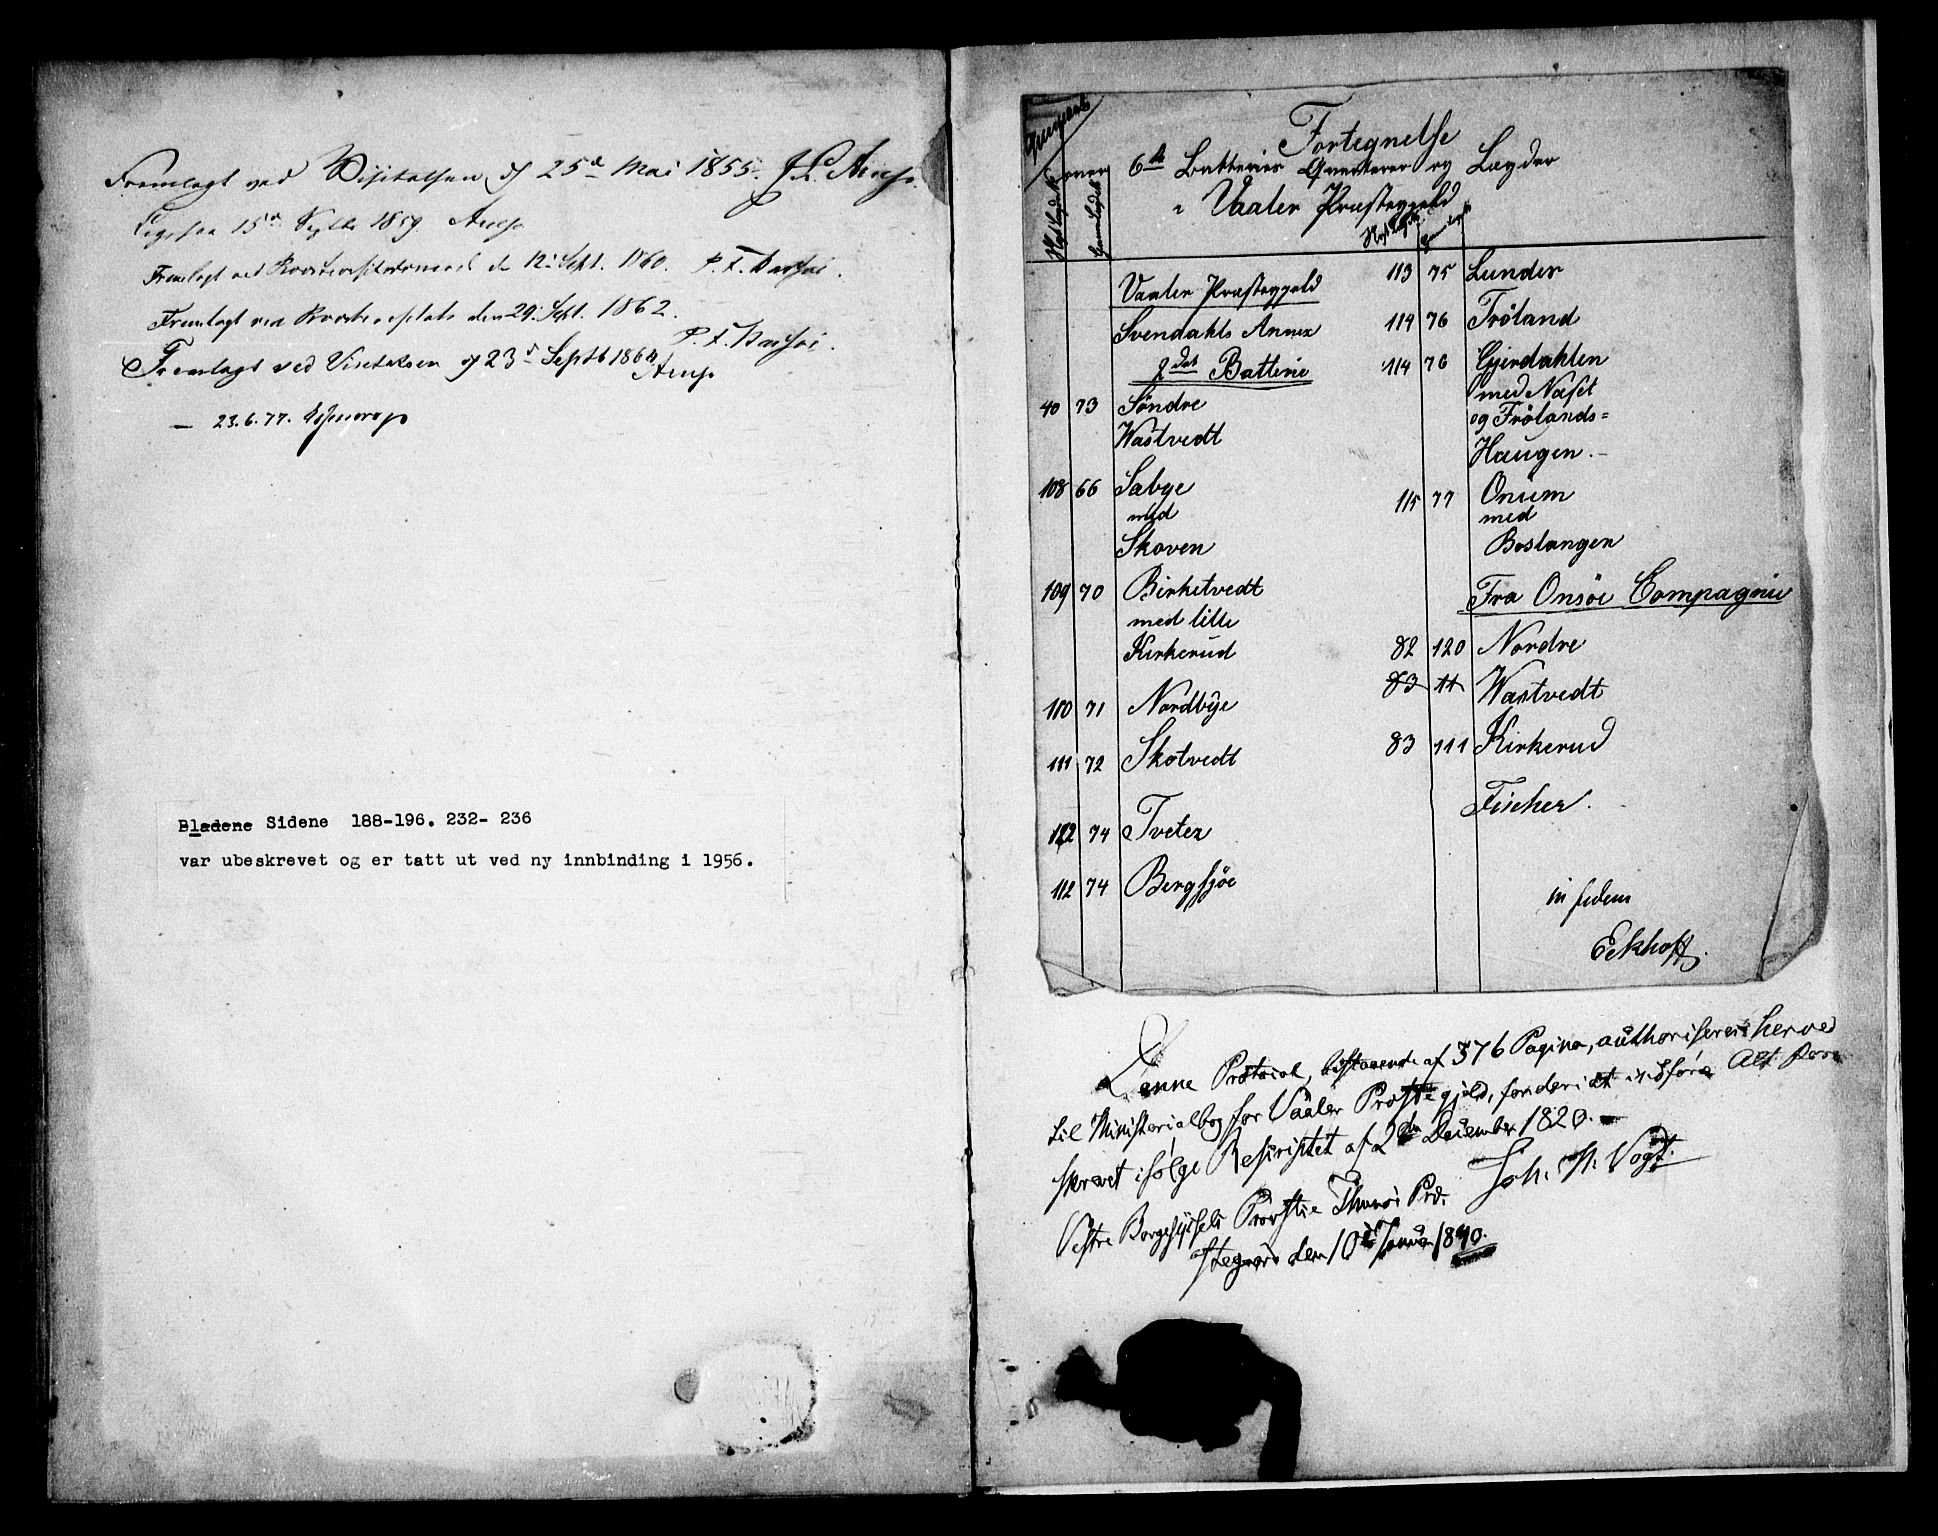 Fremlagt ved Visitatsen d 25de Mai 1855.
Ligesaa 15de Septbr 1859
Fremlagt ved d 12te Sept. 1860.
Fremlagt ved den 29. Sept. 1862.
Fremlagt ved Visitatsen d 23de Septb 1864
— 23.6.77.
Bladene Sidene 188-196. 232- 236
var ubeskrevet og er tatt ut ved ny innbinding i 1956.
Fortegnelse
6te Batteries Qvarterer og Lægder
i Vaaler Præstegjeld
Vaaler Præstegjeld
Svendahls Annex
2det Batterie
40 73 Søndre
Wastvedt
108 66 Sabye
med
Skoven
109 70 Birketvedt
med lille
Kirkerud
110 71 Nordbye
111 72 Skotvedt
112 74 Tveter
112 74 Bergsjøe
113 75 Lunder
114 76 Frøland
114 76 Gjerdahlen
med Næset
og Frølands=
Haugen.-
115 77 Onum
med
Bostangen
Fra Onsöe Compagnie
82 120 Nordre
83 11 Wastvedt
83 111 Kirkerud
Fischer.
in fidem
Eckhoff.
Denne Protocol, bestaaende af 376 Pagina, authoriseres herved
til Ministerialbog for Vaaler Præstegjeld, for deri at indføre Alt
skrevet ifølge Rescriptet af 2den December 1820.-
Vestre Borgesyssels Provstie Thunøe Prd. Joh. H. Vogt.
den 10de Januar 1840.